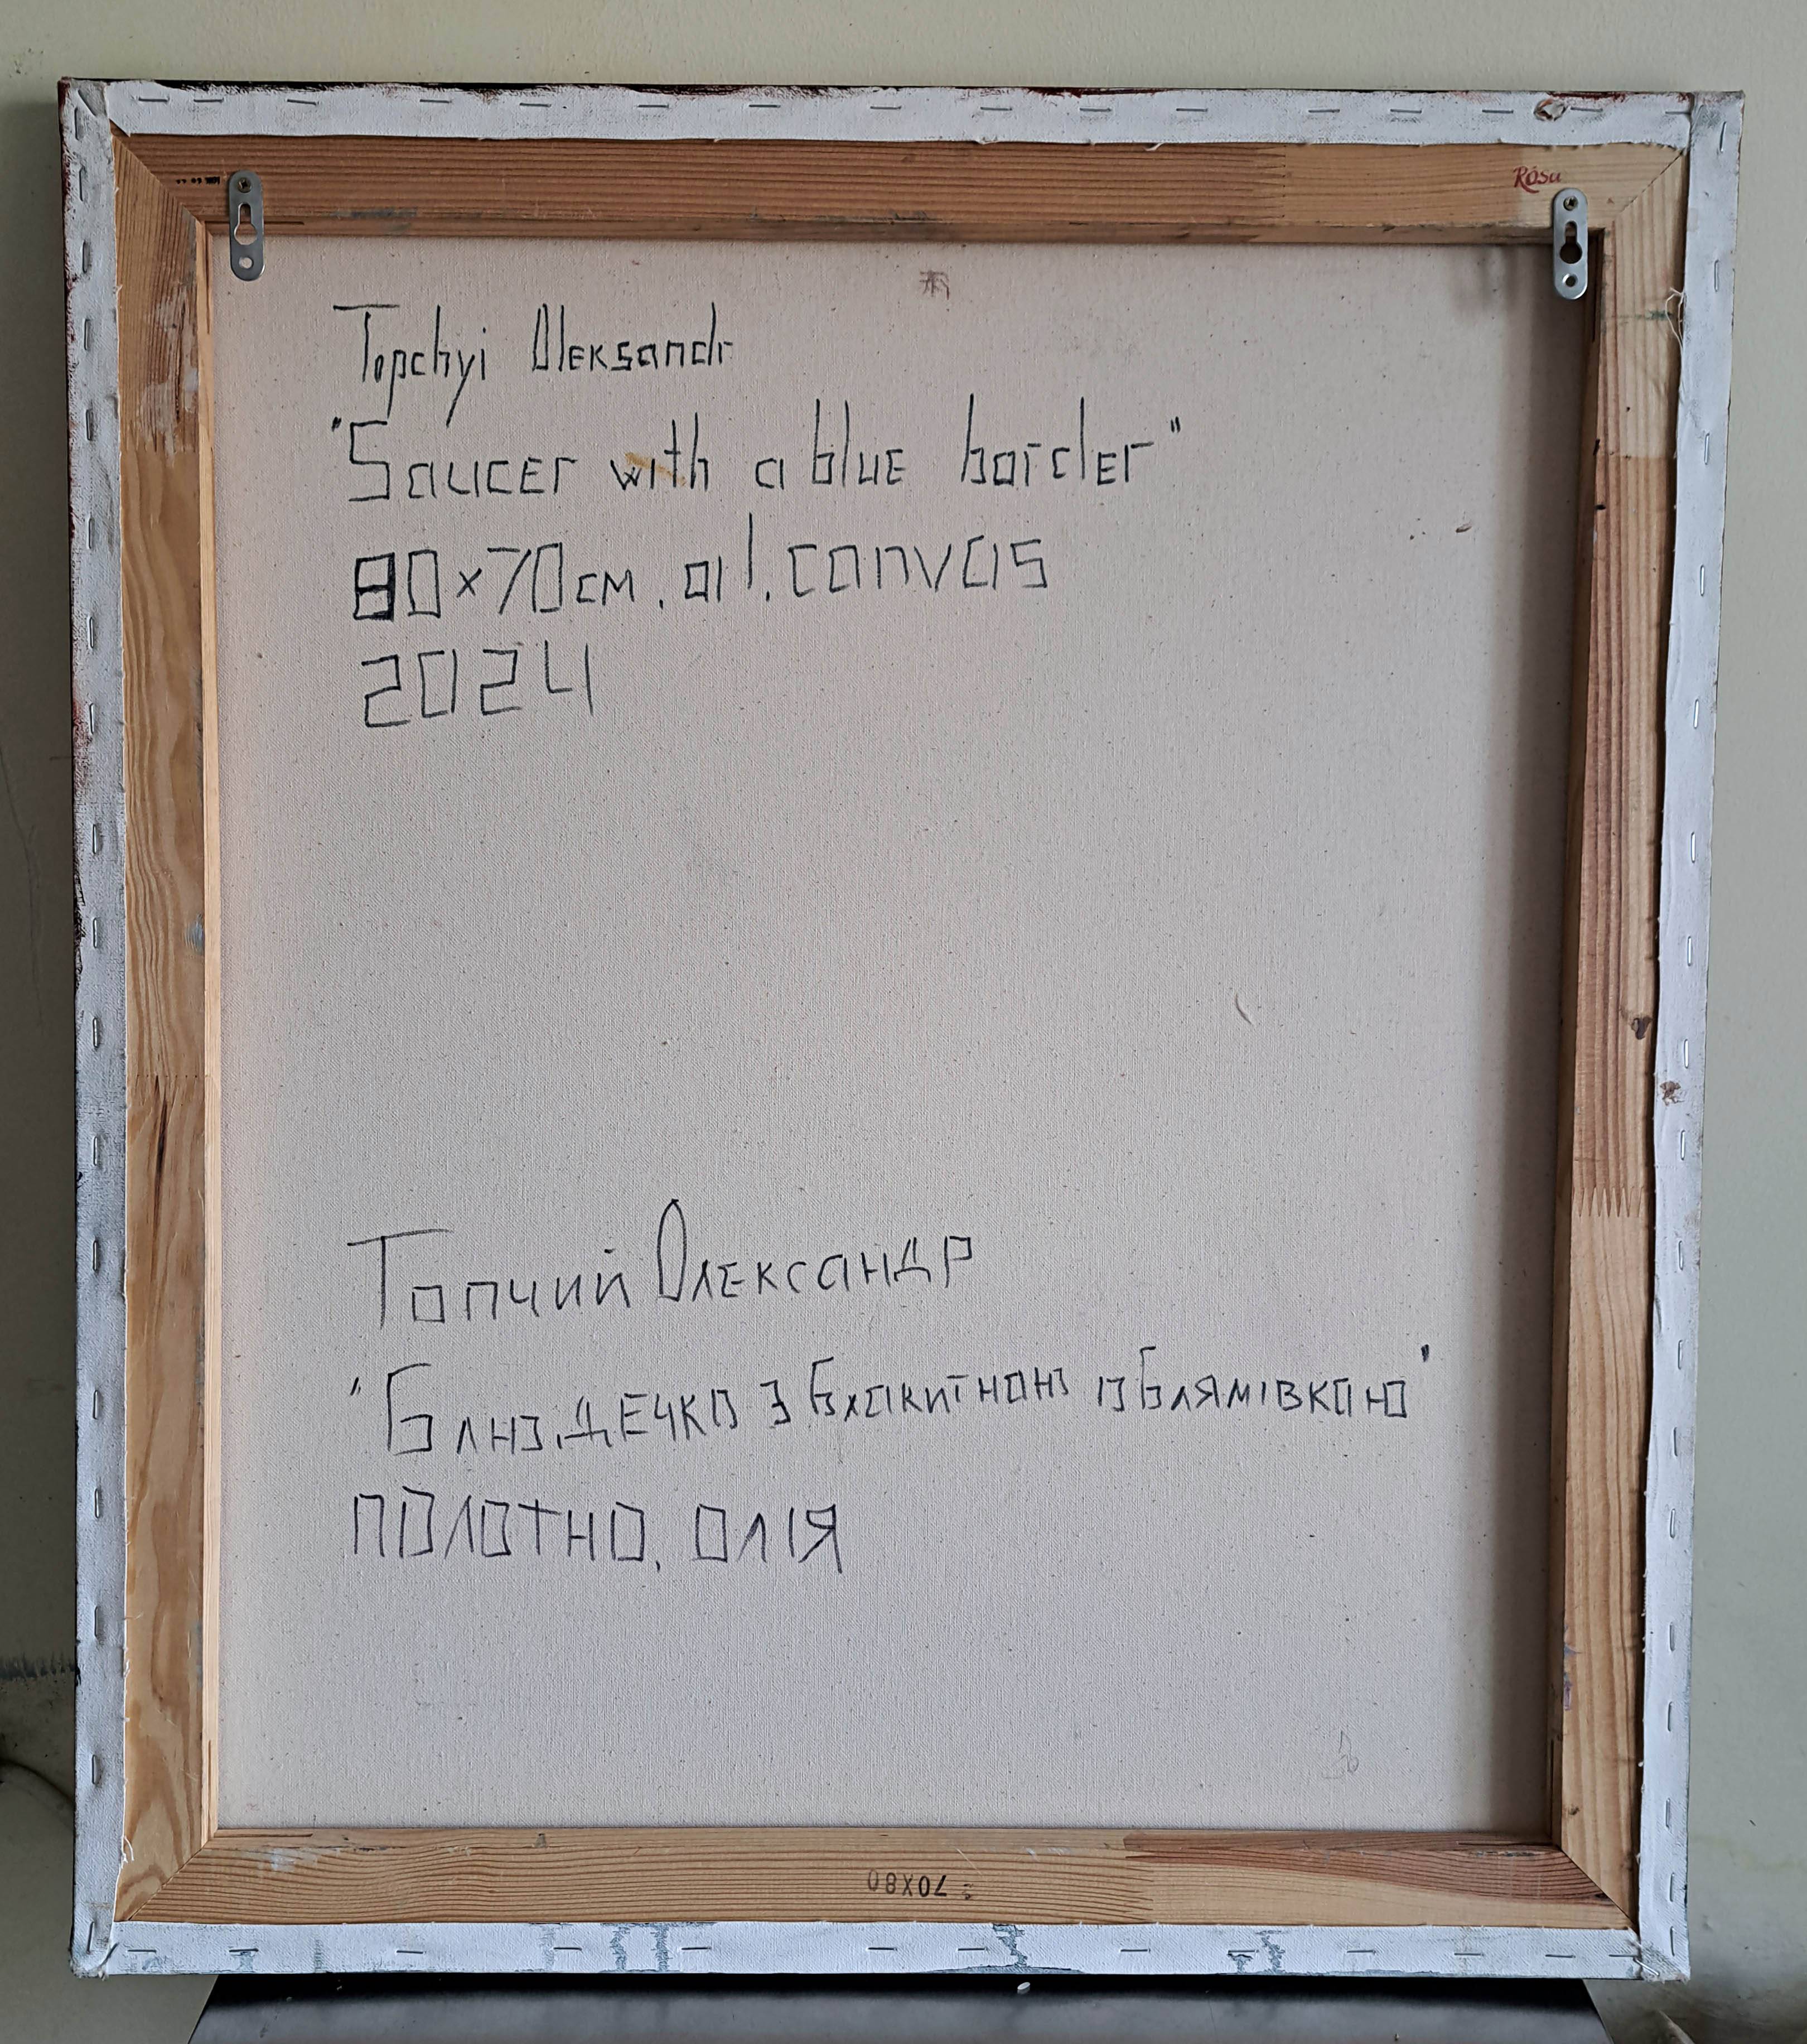 Rosa
Topchyi Oleksandr
"Saucer with a blue border"
80x70см. oil. canvas
2024
Топчий Олександр
"Блюдечко з блакитною облямівкою"
полотно. олія
70X80